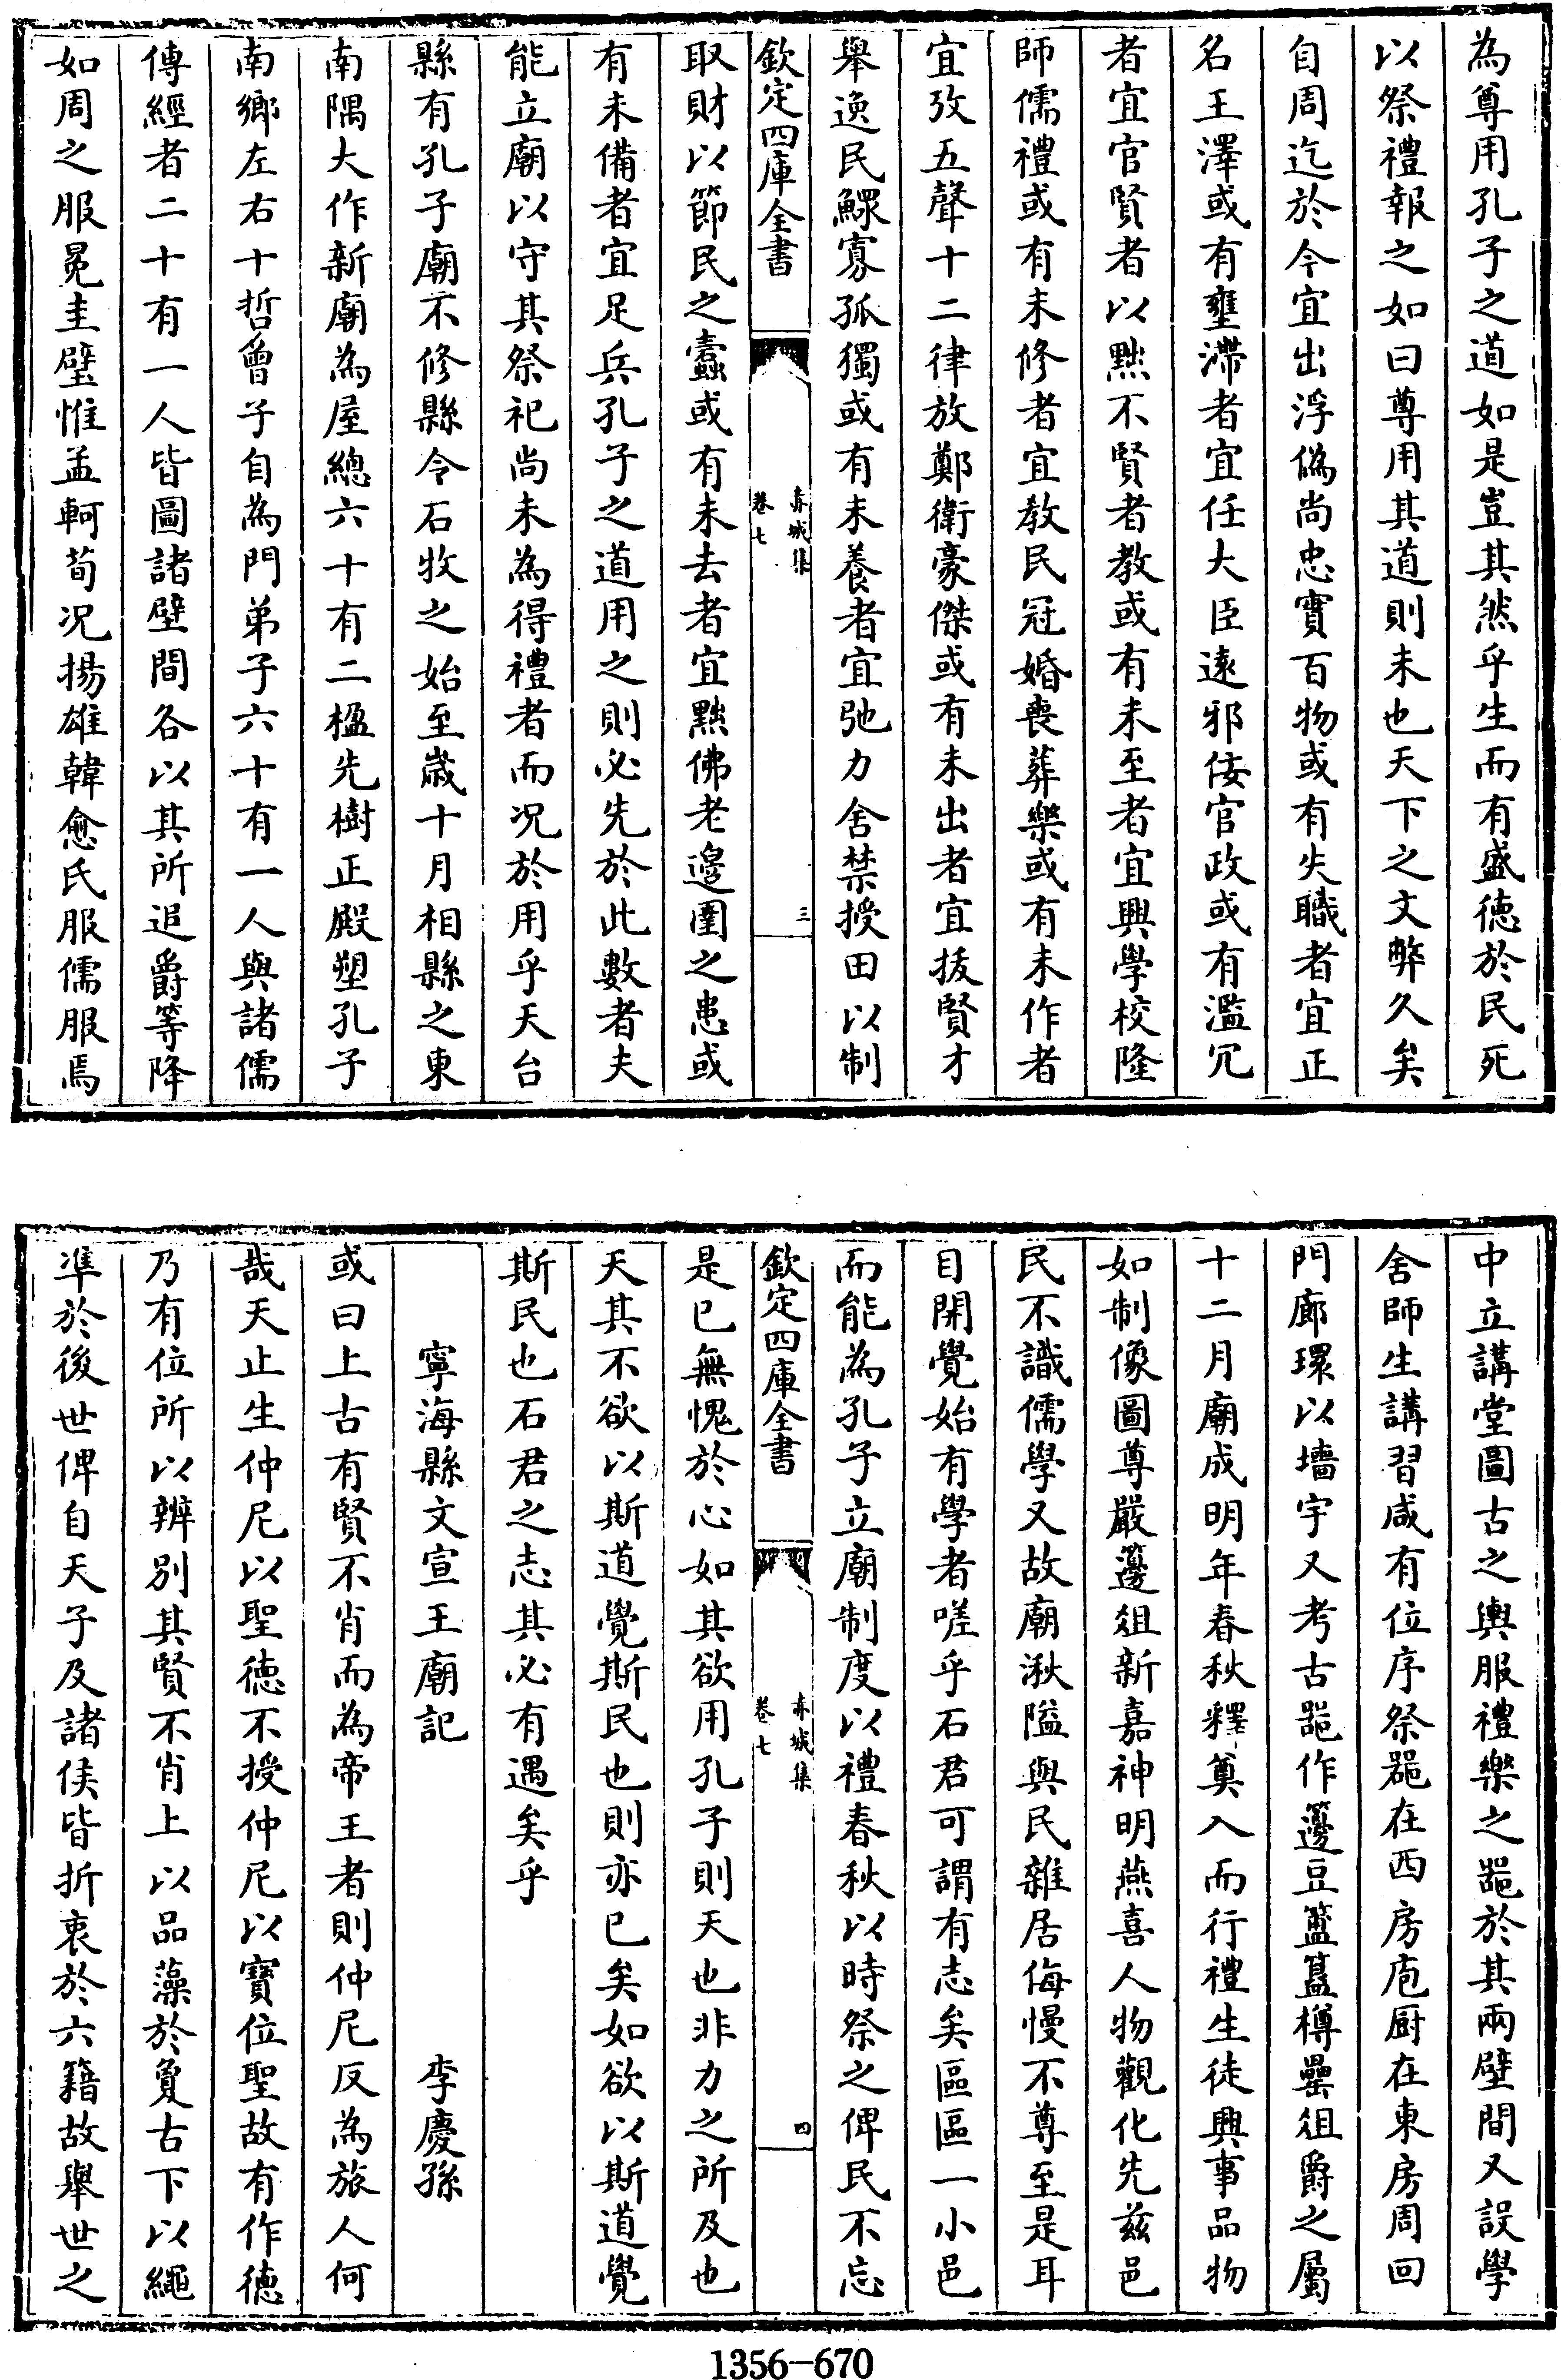 為尊用孔子之道如是豈其然乎生而有盛徳於民死
以祭禮報之如曰尊用其道則未也天下之文弊久矣
自周迄於今宜出浮偽尚忠實百物或有失職者宜正
名王澤或有壅滯者宜任大臣逺邪佞官政或有濫冗
者宜官賢者以黙不賢者教或有未至者宜興學校隆
師儒禮或有未修者宜教民冠婚喪葬樂或有未作者
宜攷五聲十二律放鄭衛豪傑或有未出者宜抜賢才
舉逸民鰥寡孤獨或有未養者宜弛力舍禁授田以制
欽定四庫全書
赤城集
卷七
三
取財以節民之蠧或有未去者宜黙佛老邉圉之患或
有未備者宜足兵孔子之道用之則必先於此數者夫
能立廟以守其祭祀尚未為得禮者而况於用乎天台
縣有孔子廟不修縣令石牧之始至嵗十月相縣之東
南隅大作新廟為屋總六十有二楹先樹正殿塑孔子
南鄉左右十哲曾子自為門弟子六十有一人與諸儒
傳經者二十有一人皆圖諸壁間各以其所追爵等降
如周之服冕圭璧惟孟軻荀况揚雄韓愈氏服儒服焉
中立講堂圖古之輿服禮樂之噐於其兩壁間又設學
舍師生講習咸有位序祭噐在西房庖厨在東房周回
門廊環以墻宇又考古噐作籩豆簠簋樽罍俎爵之屬
十二月廟成明年春秋釋奠入而行禮生徒興事品物
如制像圖尊嚴籩俎新嘉神明燕喜人物觀化先兹邑
民不識儒學又故廟湫隘與民雜居侮慢不尊至是耳
目開覺始有學者嗟乎石君可謂有志矣區區一小邑
而能為孔子立廟制度以禮春秋以時祭之俾民不忘
欽定四庫全書
赤城集
卷七
四
是已無愧於心如其欲用孔子則天也非力之所及也
天其不欲以斯道覺斯民也則亦已矣如欲以斯道覺
斯民也石君之志其必有遇矣乎
寧海縣文宣王廟記 李慶孫
或曰上古有賢不肖而為帝王者則仲尼反為旅人何
哉天止生仲尼以聖徳不授仲尼以寳位聖故有作徳
乃有位所以辨别其賢不肖上以品藻於敻古下以繩
凖於後世俾自天子及諸侯皆折衷於六籍故舉世之
1356—670